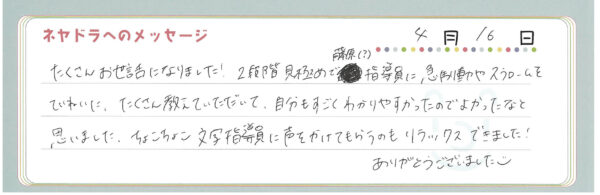 ネヤドラへのメッセージ
4月16日
藤原(?)
たくさんお世話になりました! 2段階見極めで 指導員に、急制動やスラロームを
ていねいに、たくさん教えていただいて、自分もすごくわかりやすかったのでよかったなと
思いました、ちょこちょこ 指導員に声をかけてもらうのもリラックスできました!
ありがとうございました